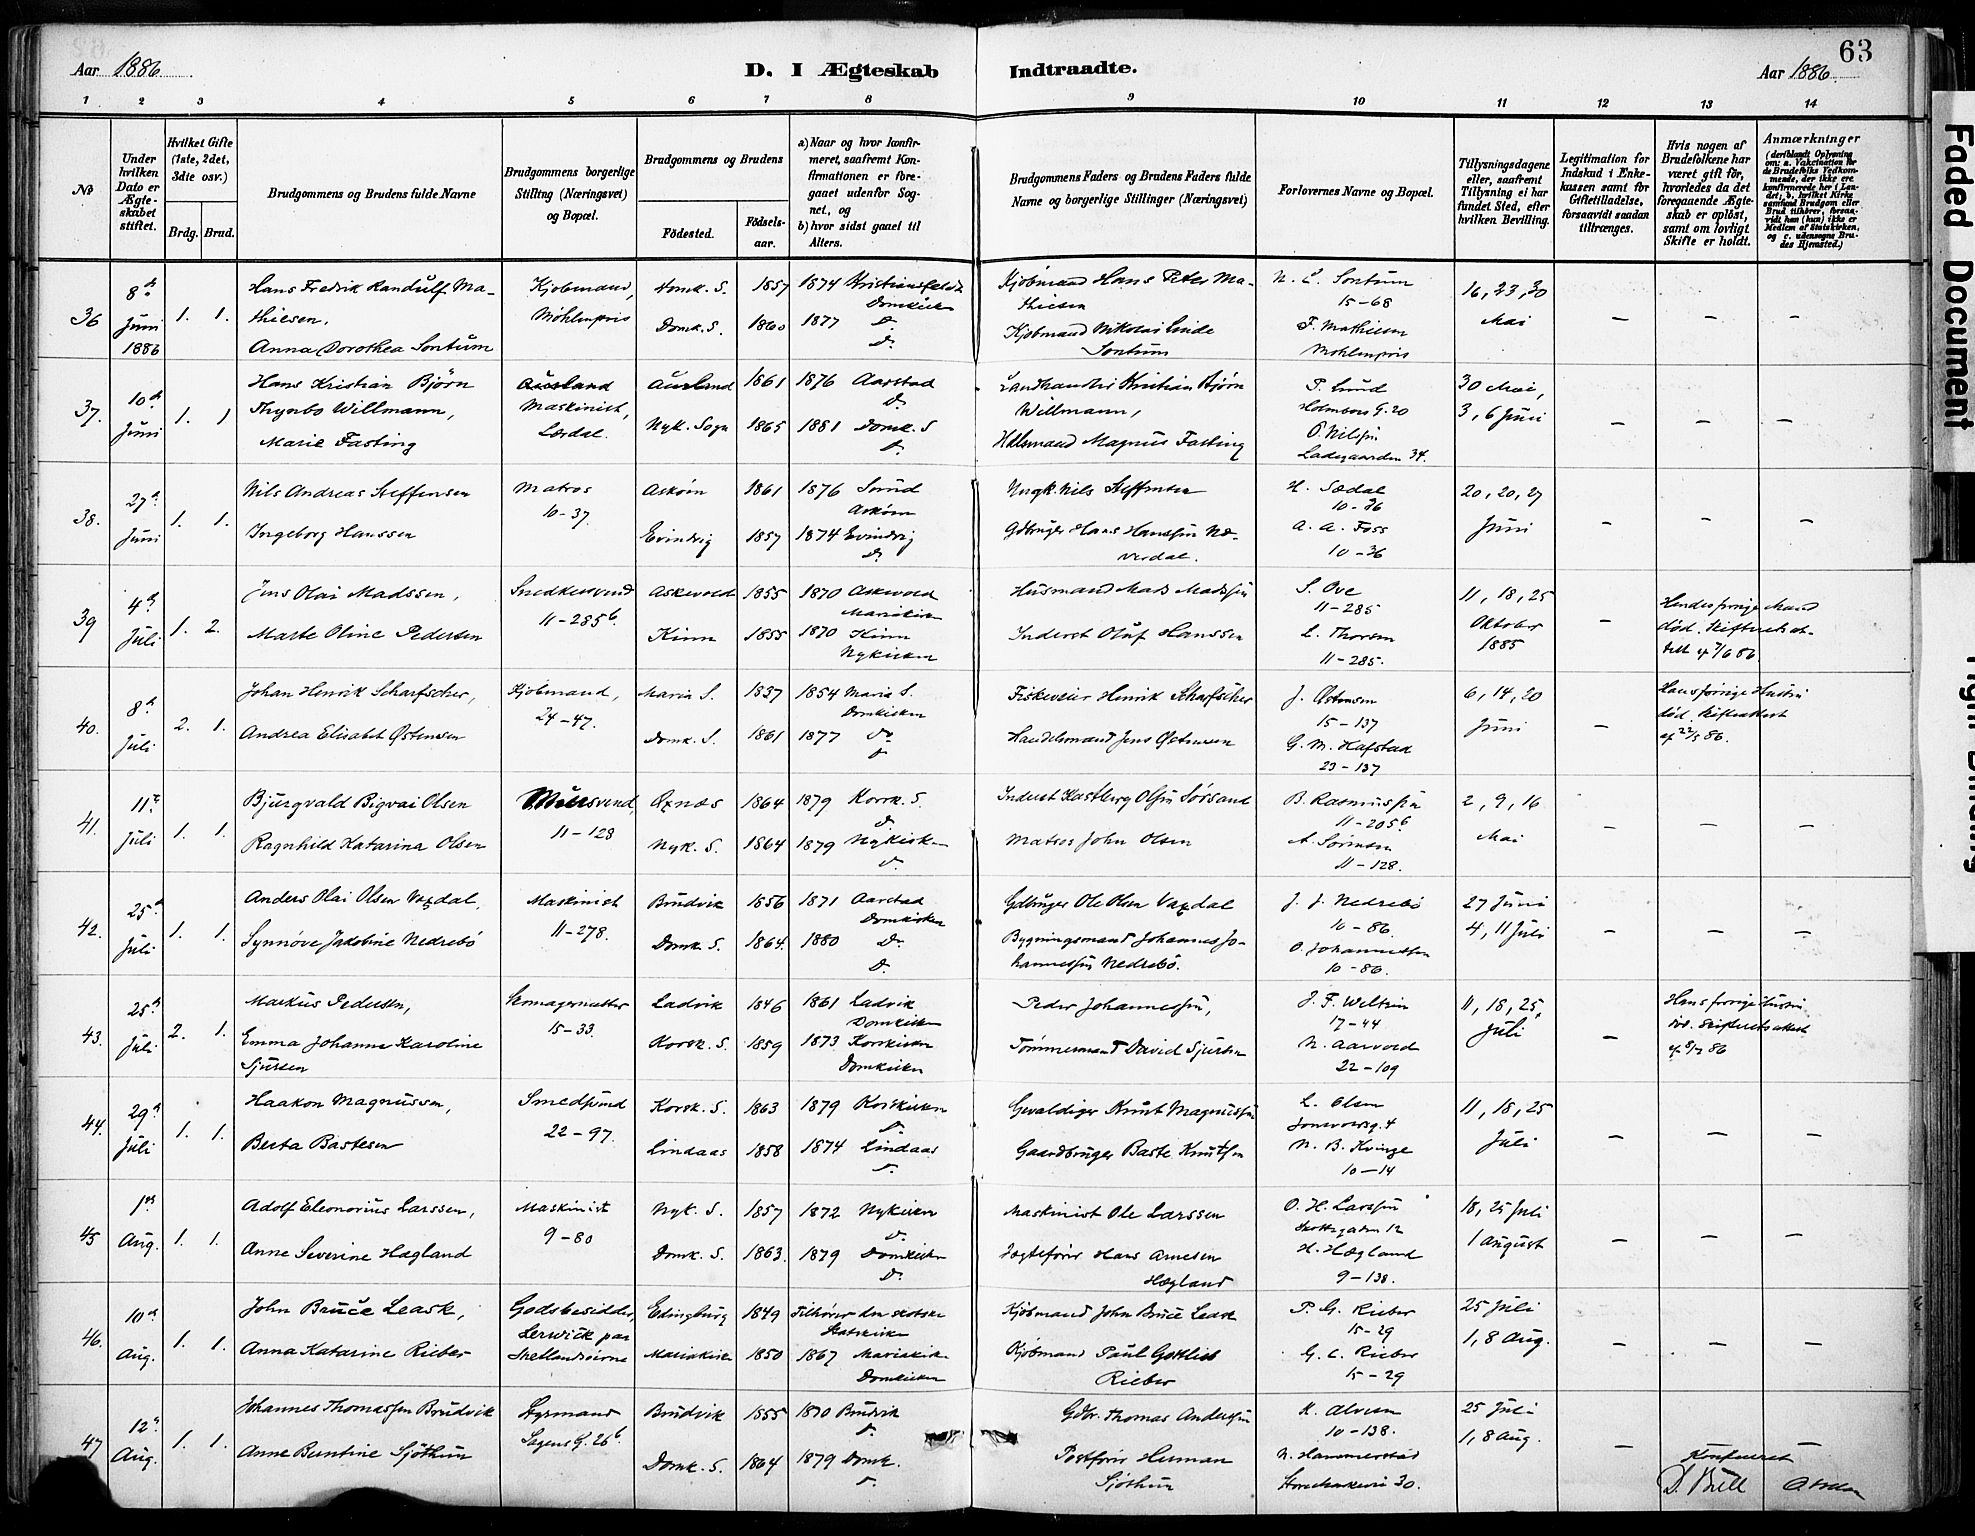 63
Aar 1886
D. I Ægteskab Indtraadte.
Aar 1886
1 2 3 4 5 6 7 8 9 10 11 12 13 14
No
Under hvilken Dato er Ægteskabet stiftet.
Hvilket Gifte (1ste, 2det, 3die osv.)
Brdg. Brud.
Brudgommens og Brudens fulde Navne
Brudgommens borgerlige Stilling (Næringsvei) og Bopæl.
Brudgommens og Brudens
Fødested.
Fødselsaar.
a) Naar og hvor konfirmeret, saafremt Konfirmationen er foregaaet udenfor Sognet, og
b) hvor sidst gaaet til Alters.
Brudgommens Faders og Brudens Faders fulde Navne og borgerlige Stillinger (Næringsvei)
Forlovernes Navne og Bopæl.
Tillysningsdagene eller, saafremt Tillysning ei har fundet Sted, efter hvilken Bevilling.
Legitimation for Indskud i Enkekassen samt for Giftetilladelse, forsaavidt saadan tiltrænges.
Hvis nogen af Brudefolkene har været gift før, hvorledes da det foregaaende Ægteskab er opløst, samt om lovligt Skifte er holdt.
Anmærkninger
(deriblandt Oplysning om: a. Vakcination for de Brudefolks Vedkommende, der ikke ere konfirmerede her i Landet; b. hvilket Kirkesamfund Brudgom eller Brud tilhører, forsaavidt han (hun) ikke er Medlem af Statskirken, og c. udensogns Brudes Hjemsted.)
36 8de Juni 1886 1. 1.
Hans Fredrik Randulf Mathiesen,
Anna Dorothea Sontum
Kjøbmand, Møhlenpris
Domk. S. 1857 1874 Kristiansfeldt Domkirken
Domk. S. 1860 1877 Do. Do.
Kjøbmand Hans Peter Mathiesen
Kjøbmand Nikolai Linde Sontum
N. L. Sontum 15-68
F. Mathiesen Møhlenpris
16, 23, 30 Mai
— — —
37. 10de Juni 1. 1
Hans Kristian Bjørn Thynbo Willmann,
Marie Fasting
Maskinist, Lærdal.
Aurland 1861 1876 Aarstad Do.
Nyk. Sogn 1865 1881 Domk. S Do.
Landhandler Kristian Bjørn Willmann,
Magnus Fasting
P. Lund Holmboes G. 20
O. Nilssen Ladegaarden 34.
30 Mai, 3, 6 Juni
— — —
38. 27de Juni 1. 1.
Nils Andreas Steffensen
Ingeborg Hanssen
Matros 10-37.
Askøen 1861 1876 Sund Askøen
Evindvig 1857 1874 Evindvig Do.
Ungk. Nils Steffensen
Gdbruger Hans Hanssen Næverdal.
H. Sædal 10-36
A. A. Foss 10-36
20, 20, 27 Juni
— — —
39 4de Juli 1. 2.
Jens Olai Madssen,
Marte Oline Pedersen
Snedkersvend 11-285b.
Askevold 1855 1870 Askevold Mariakirken
Kinn 1855 1870 Kinn Nykirken
Husmand Mads Madssen
Inderst Oluf Hanssen
S. Ove 11-285
L. Thorsen 11-285.
11, 18, 25 Oktober 1885
—
Hendes forrige Mand død. Skifteretsattest af 7/6 86.
40. 8de Juli 2. 1.
Johan Henrik Scharfscher,
Andrea Elisabet Østensen
Kjøbmand, 24-47.
Maria S. 1837 1854 Maria S. Domkirken
Domk. S. 1861 1877 Do. Do.
Henrik Scharfscher
Handelsmand Jens Østensen
J. Østensen 15-137
G. M. Hafstad 23-137
6, 14, 20 Juni
—
Hans forrige Hustru død. Skifteattest af 22/5 86.
41. 11te Juli 1. 1.
Bjurgvald Bigvai Olsen
Ragnhild Katarina Olsen
11-128
Øxnæs 1864 1879 Korsk. S. Do.
Nyk. S. 1864 1879 Nykirken Do.
Inderst Kastberg Olsen Sørsand
Matros John Olsen
B. Rasmussen 11-205b.
A. Sørensen 11-128.
2, 9, 16 Mai
— — —
42. 25de Juli 1. 1.
Anders Olai Olsen Vaxdal,
Synnøve Jakobine Nedrebø
Maskinist 11-278.
Brudvik 1856 1871 Aarstad Domkirken
Domk. S. 1864. 1880 Do. Do.
Gdbruger Ole Olsen Vaxdal
Bygningsmand Johannes Johannessen Nedrebø.
J. J. Nedrebø 10-86.
O. Johannessen 10-86.
27 Juni 4, 11 Juli
— — —
43. 25de Juli 2. 1.
Markus Pedersen,
Emma Johanne Karoline Sjursen
Skomagermester 15-33.
Ladvik 1846 1861 Ladvik Domkirken
Korsk. S. 1859 1873 Korskirken Domkirken
Peder Johannessen,
Tømmermand David Sjursen
J. F. Weltzin 17-44
N. Aarvold 22-109
11, 18, 25, Juli
—
Hans forrige Hustru død. Skifteretsattest af 8/7 86
44. 29de Juli 1. 1.
Haakon Magnussen,
Berta Bastesen
Smedsvend 22-97.
Korsk. S. 1863 1879 Korskirken Do.
Lindaas 1858 1874 Lindaas Do.
Gevaldiger Knut Magnussen
Gaardbruger Baste Knutsen
L. Olsen Jonsvoldsg. 4
N. B. Kvinge 10-14
11, 18, 25 Juli
— — —
45 1ste Aug. 1. 1.
Adolf Eleonorius Larssen,
Anne Severine Hægland
Maskinist 9-80
Nyk. S. 1857 1872 Nykirken Do.
Domk. S. 1863. 1879 Domkirken Do.
Maskinist Ole Larssen
Jægtefører Hans Arnesen Hægland
O. H. Larssen Skottegaden 12
H. Hægland 9-138.
18, 25 Juli 1 August
— — —
46. 10de Aug. 1. 1.
John Bruce Leask,
Anna Katarine Rieber
Godsbesidder, Lerwick paa Shetlandsøerne
Edingburg 1849 Tilhører den skotske Statskirke
Mariakirken 1850 1867 Mariakirken Domkirken
Kjøbmand John Bruce Leask
Kjøbmand Paul Gottlieb Rieber
P. G. Rieber 15-29
G. C. Rieber 15-29
25 Juli 1, 8 Aug.
— — —
47 12te Aug. 1. 1.
Johannes Thomassen Brudvik
Anne Berntine Sjøthun
Styrmand Sagens G. 26b.
Brudvik 1855 1870 Brudvik Do.
Domk. S. 1864 1879 Domk. Do.
Gdbr. Thomas Anderssen
Postfører Herman Sjøthun
K. Alvsen 10-138.
N. Hammerstad 30.
25 Juli 1, 8 Aug.
— —
Konfereret
D. Bull
Faded Document
Tight Binding